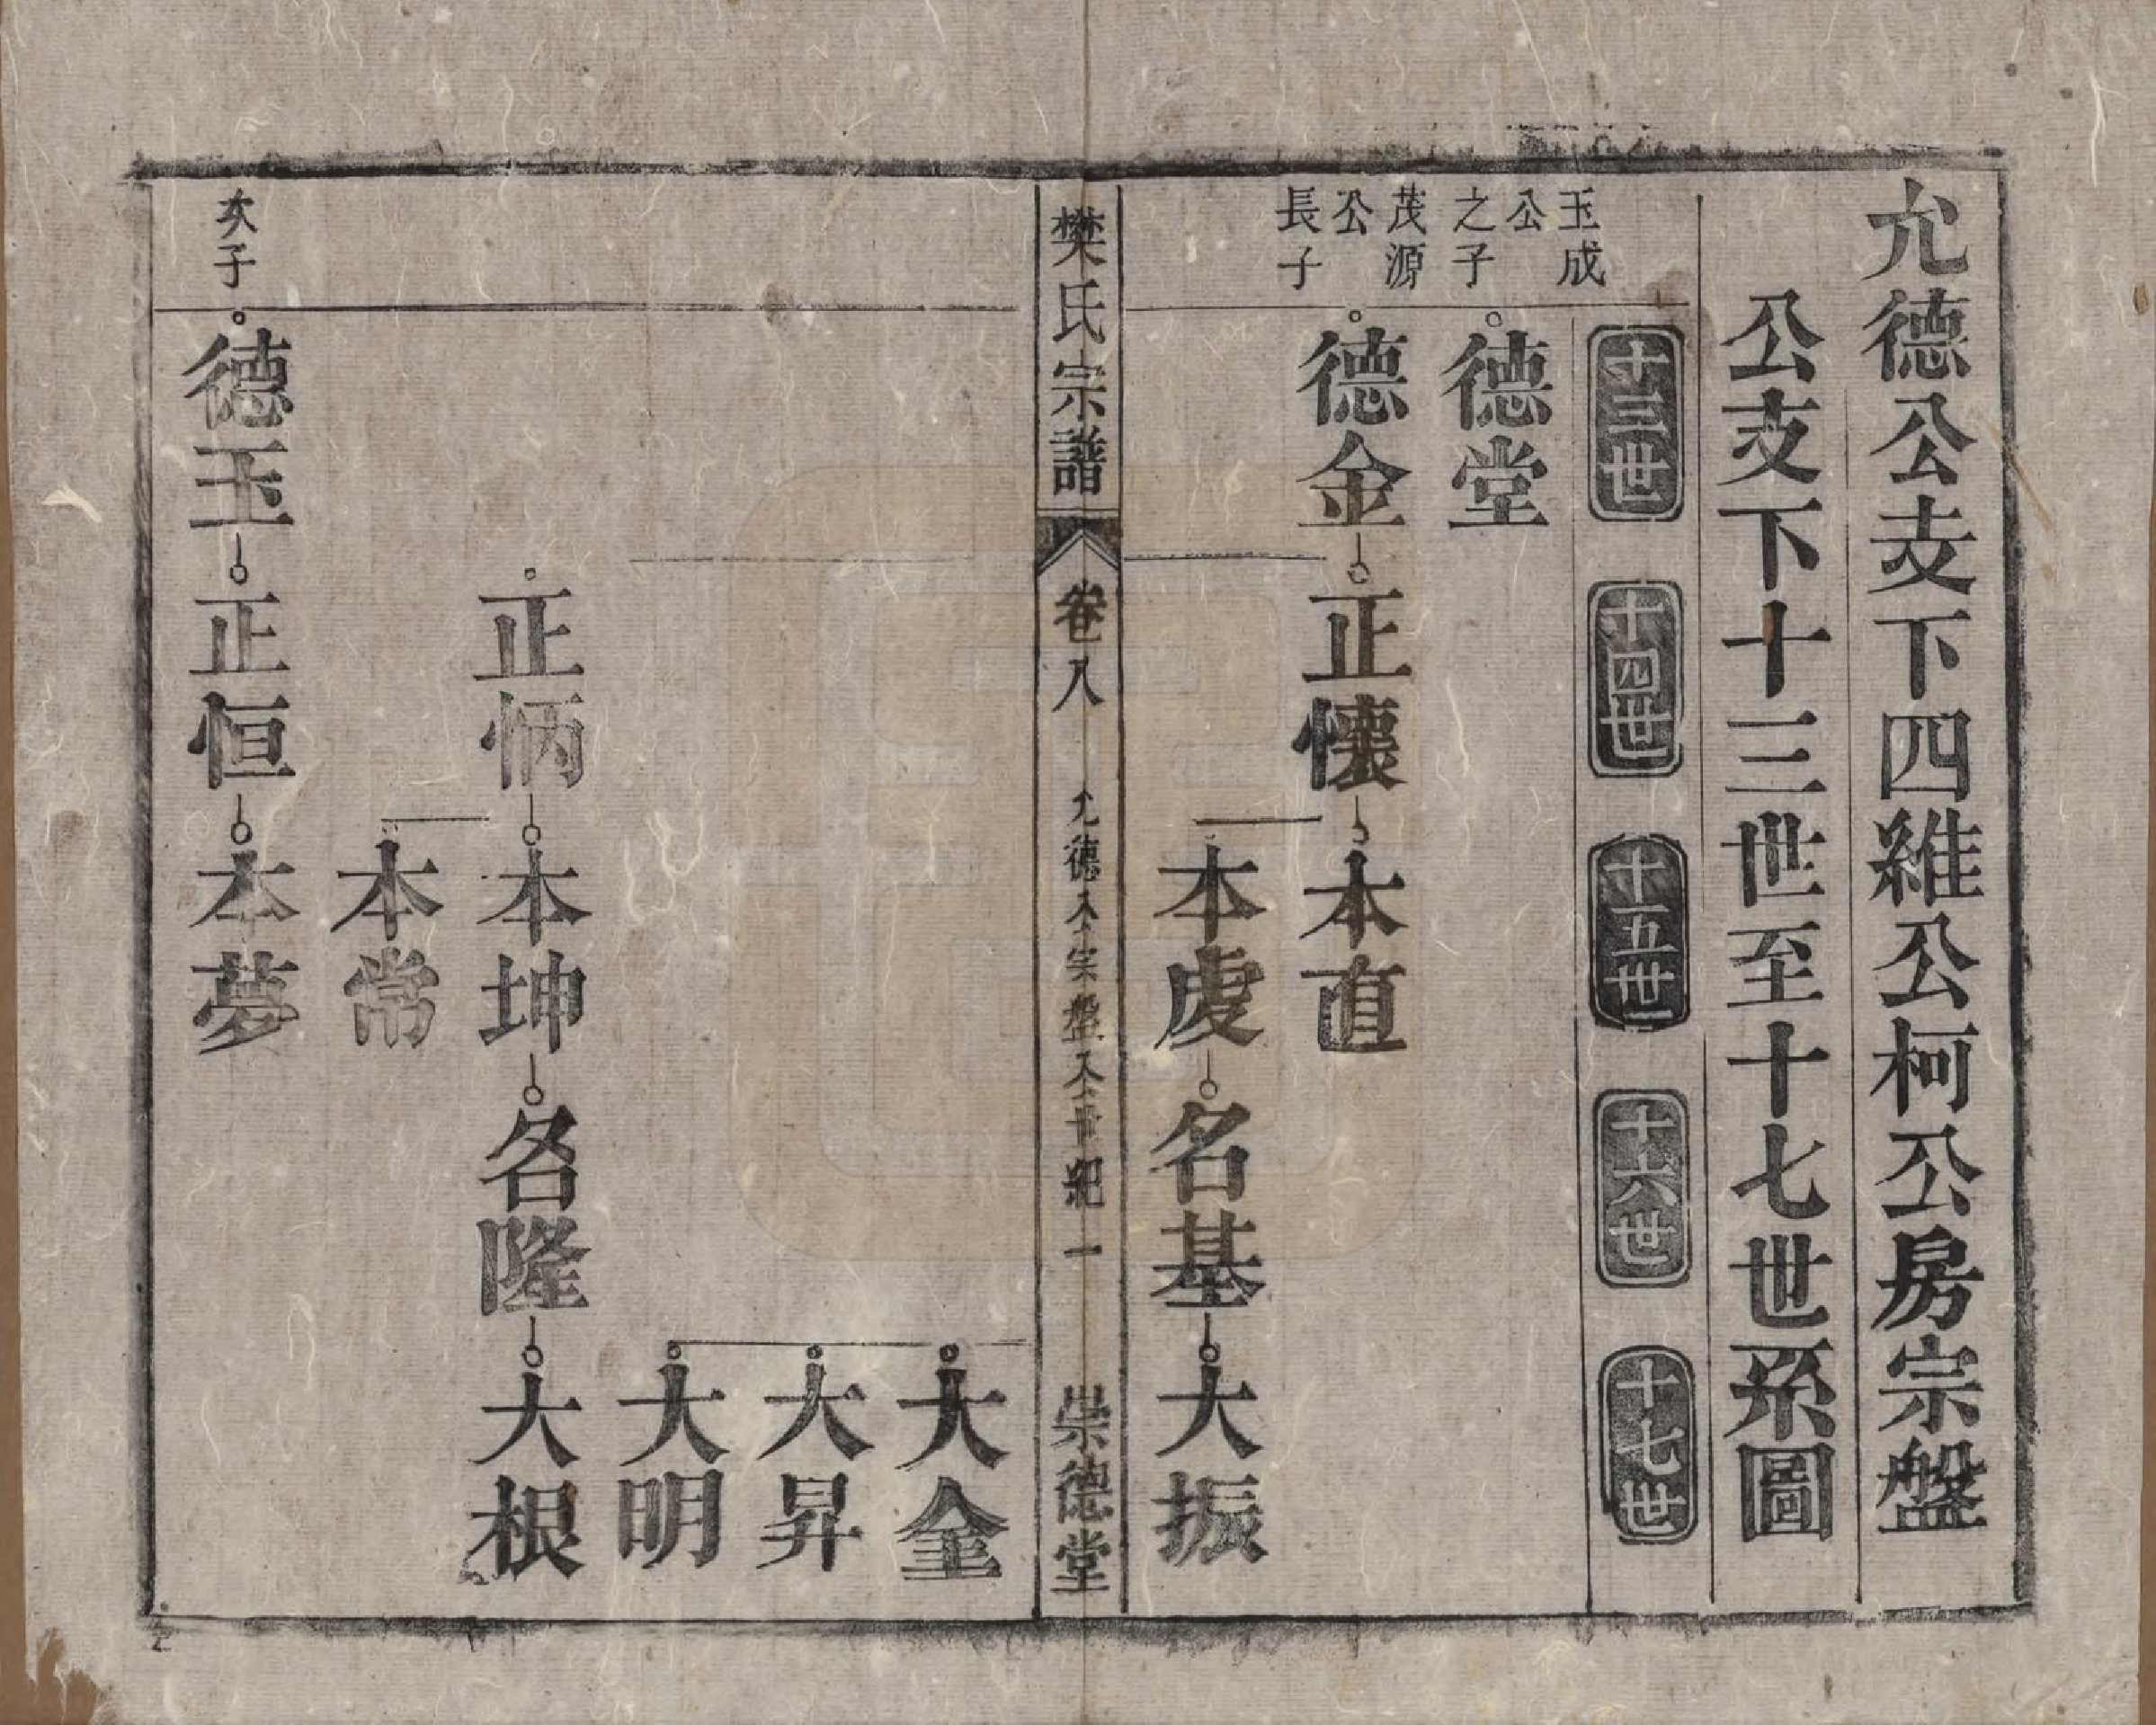 允德公支下四維公柯公房宗盤
公支下十三世至十七世系圖
十三世
十四世
十五世
十六世
十七世
玉成公之子
德堂
茂源公長子
德金
正懷
本直
本虔
名基
大振
樊氏宗譜
卷八
允德公宗盤公世紀一
崇德堂
大金
大昇
大明
正怲
本坤
名隆
大根
本常
次子
德玉
正恒
本夢